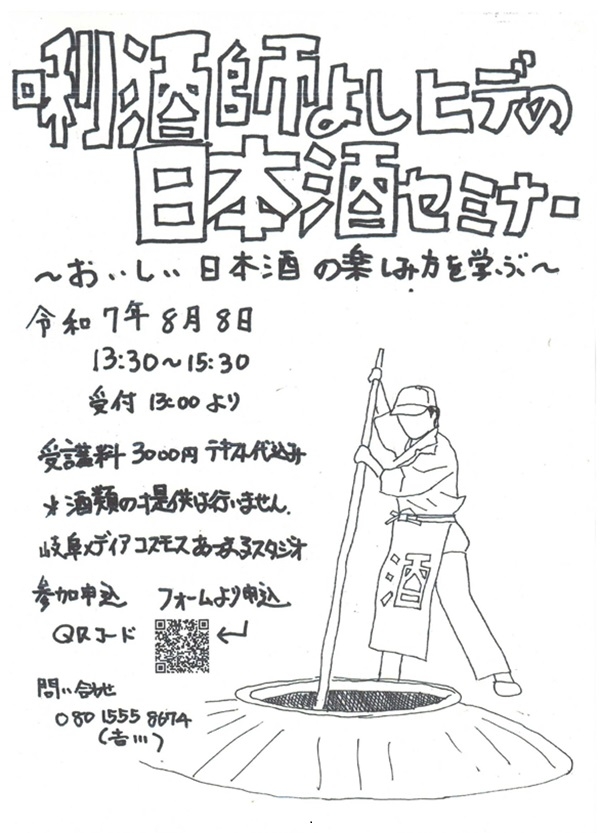 唎酒師よしヒデの
日本酒セミナー
~おいしい日本酒の楽しみ方を学ぶ~
令和7年8月8日
13:30~15:30
受付 13:00より
受講料 3000円 テキスト代込み
*酒類の提供は行いません.
岐阜メディアコスモスあつまるスタジオ
参加申込 フォームより申込
QRコード
問い合わせ
080 1555 8674
(吉川)
酒